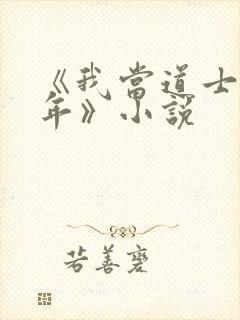 《我當道士
年》小說
若善